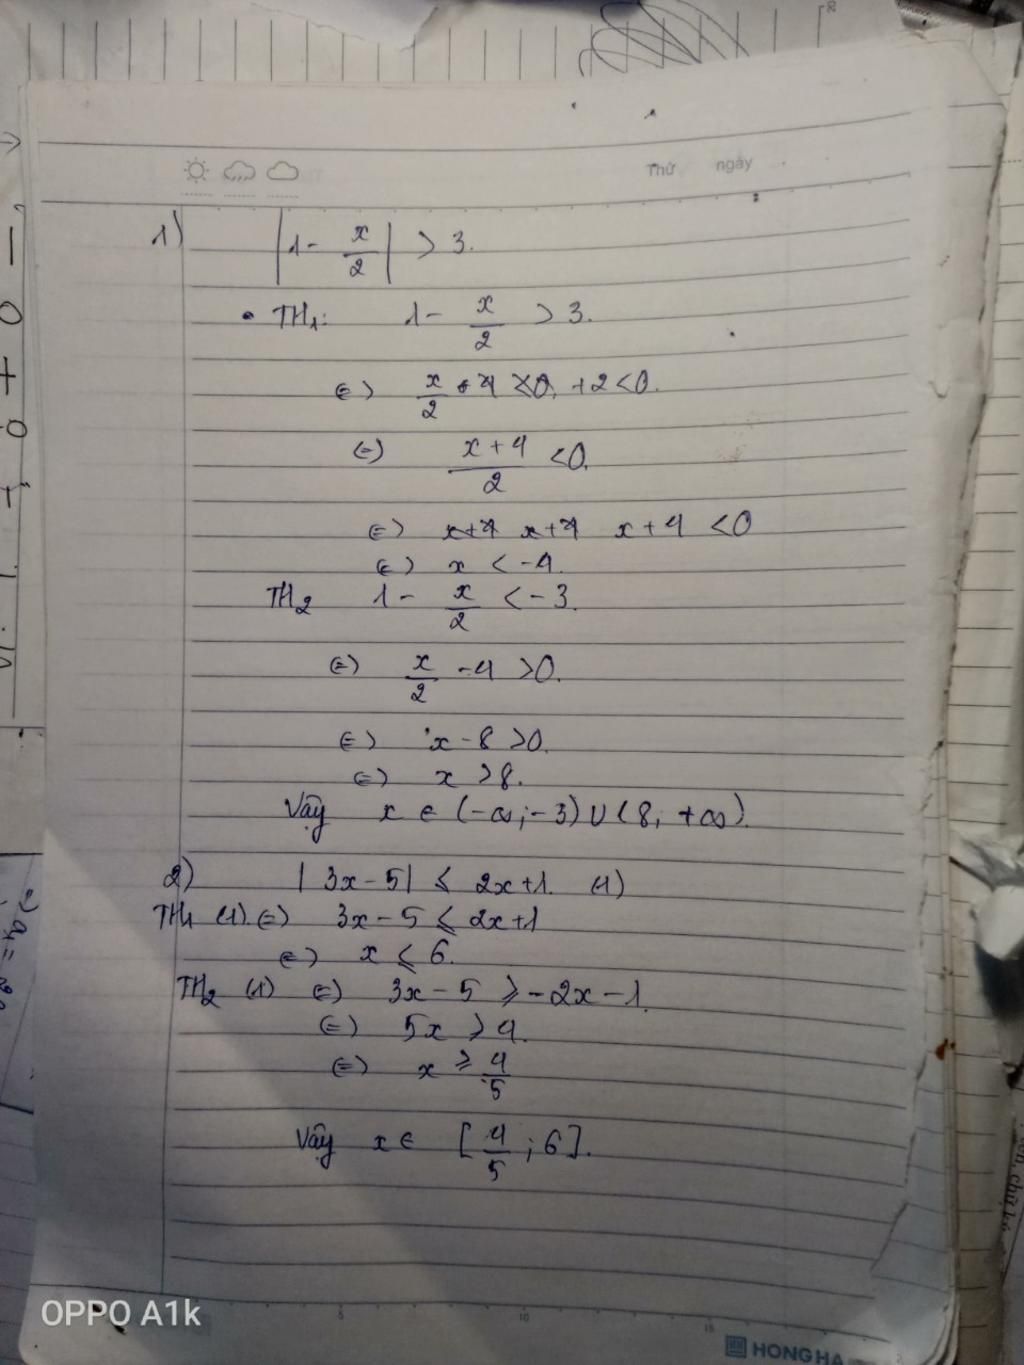 Thứ ngày
1) |1 - x/2| > 3.
• TH1: 1 - x/2 > 3.
(=) x/2 + 2 < 0.
(=) (x + 4)/2 < 0.
(=) x+4 x+4 x + 4 < 0
(=) x < -4.
TH2 1 - x/2 < -3.
(=) x/2 - 4 > 0.
(=) x - 8 > 0.
(=) x > 8.
Vậy x ∈ (-∞; -3) ∪ (8; +∞).
2) |3x - 5| ≤ 2x + 1. (1)
TH1 (1). (=) 3x - 5 ≤ 2x + 1
(=) x ≤ 6.
TH2 (1) (=) 3x - 5 ≥ -2x - 1.
(=) 5x ≥ 4.
(=) x ≥ 4/5
Vậy x ∈ [4/5; 6].
OPPO A1k
5 10 15
HONG HA